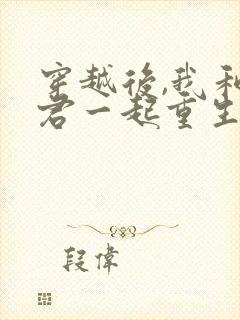 穿越後,我和
君一起重生
段偉